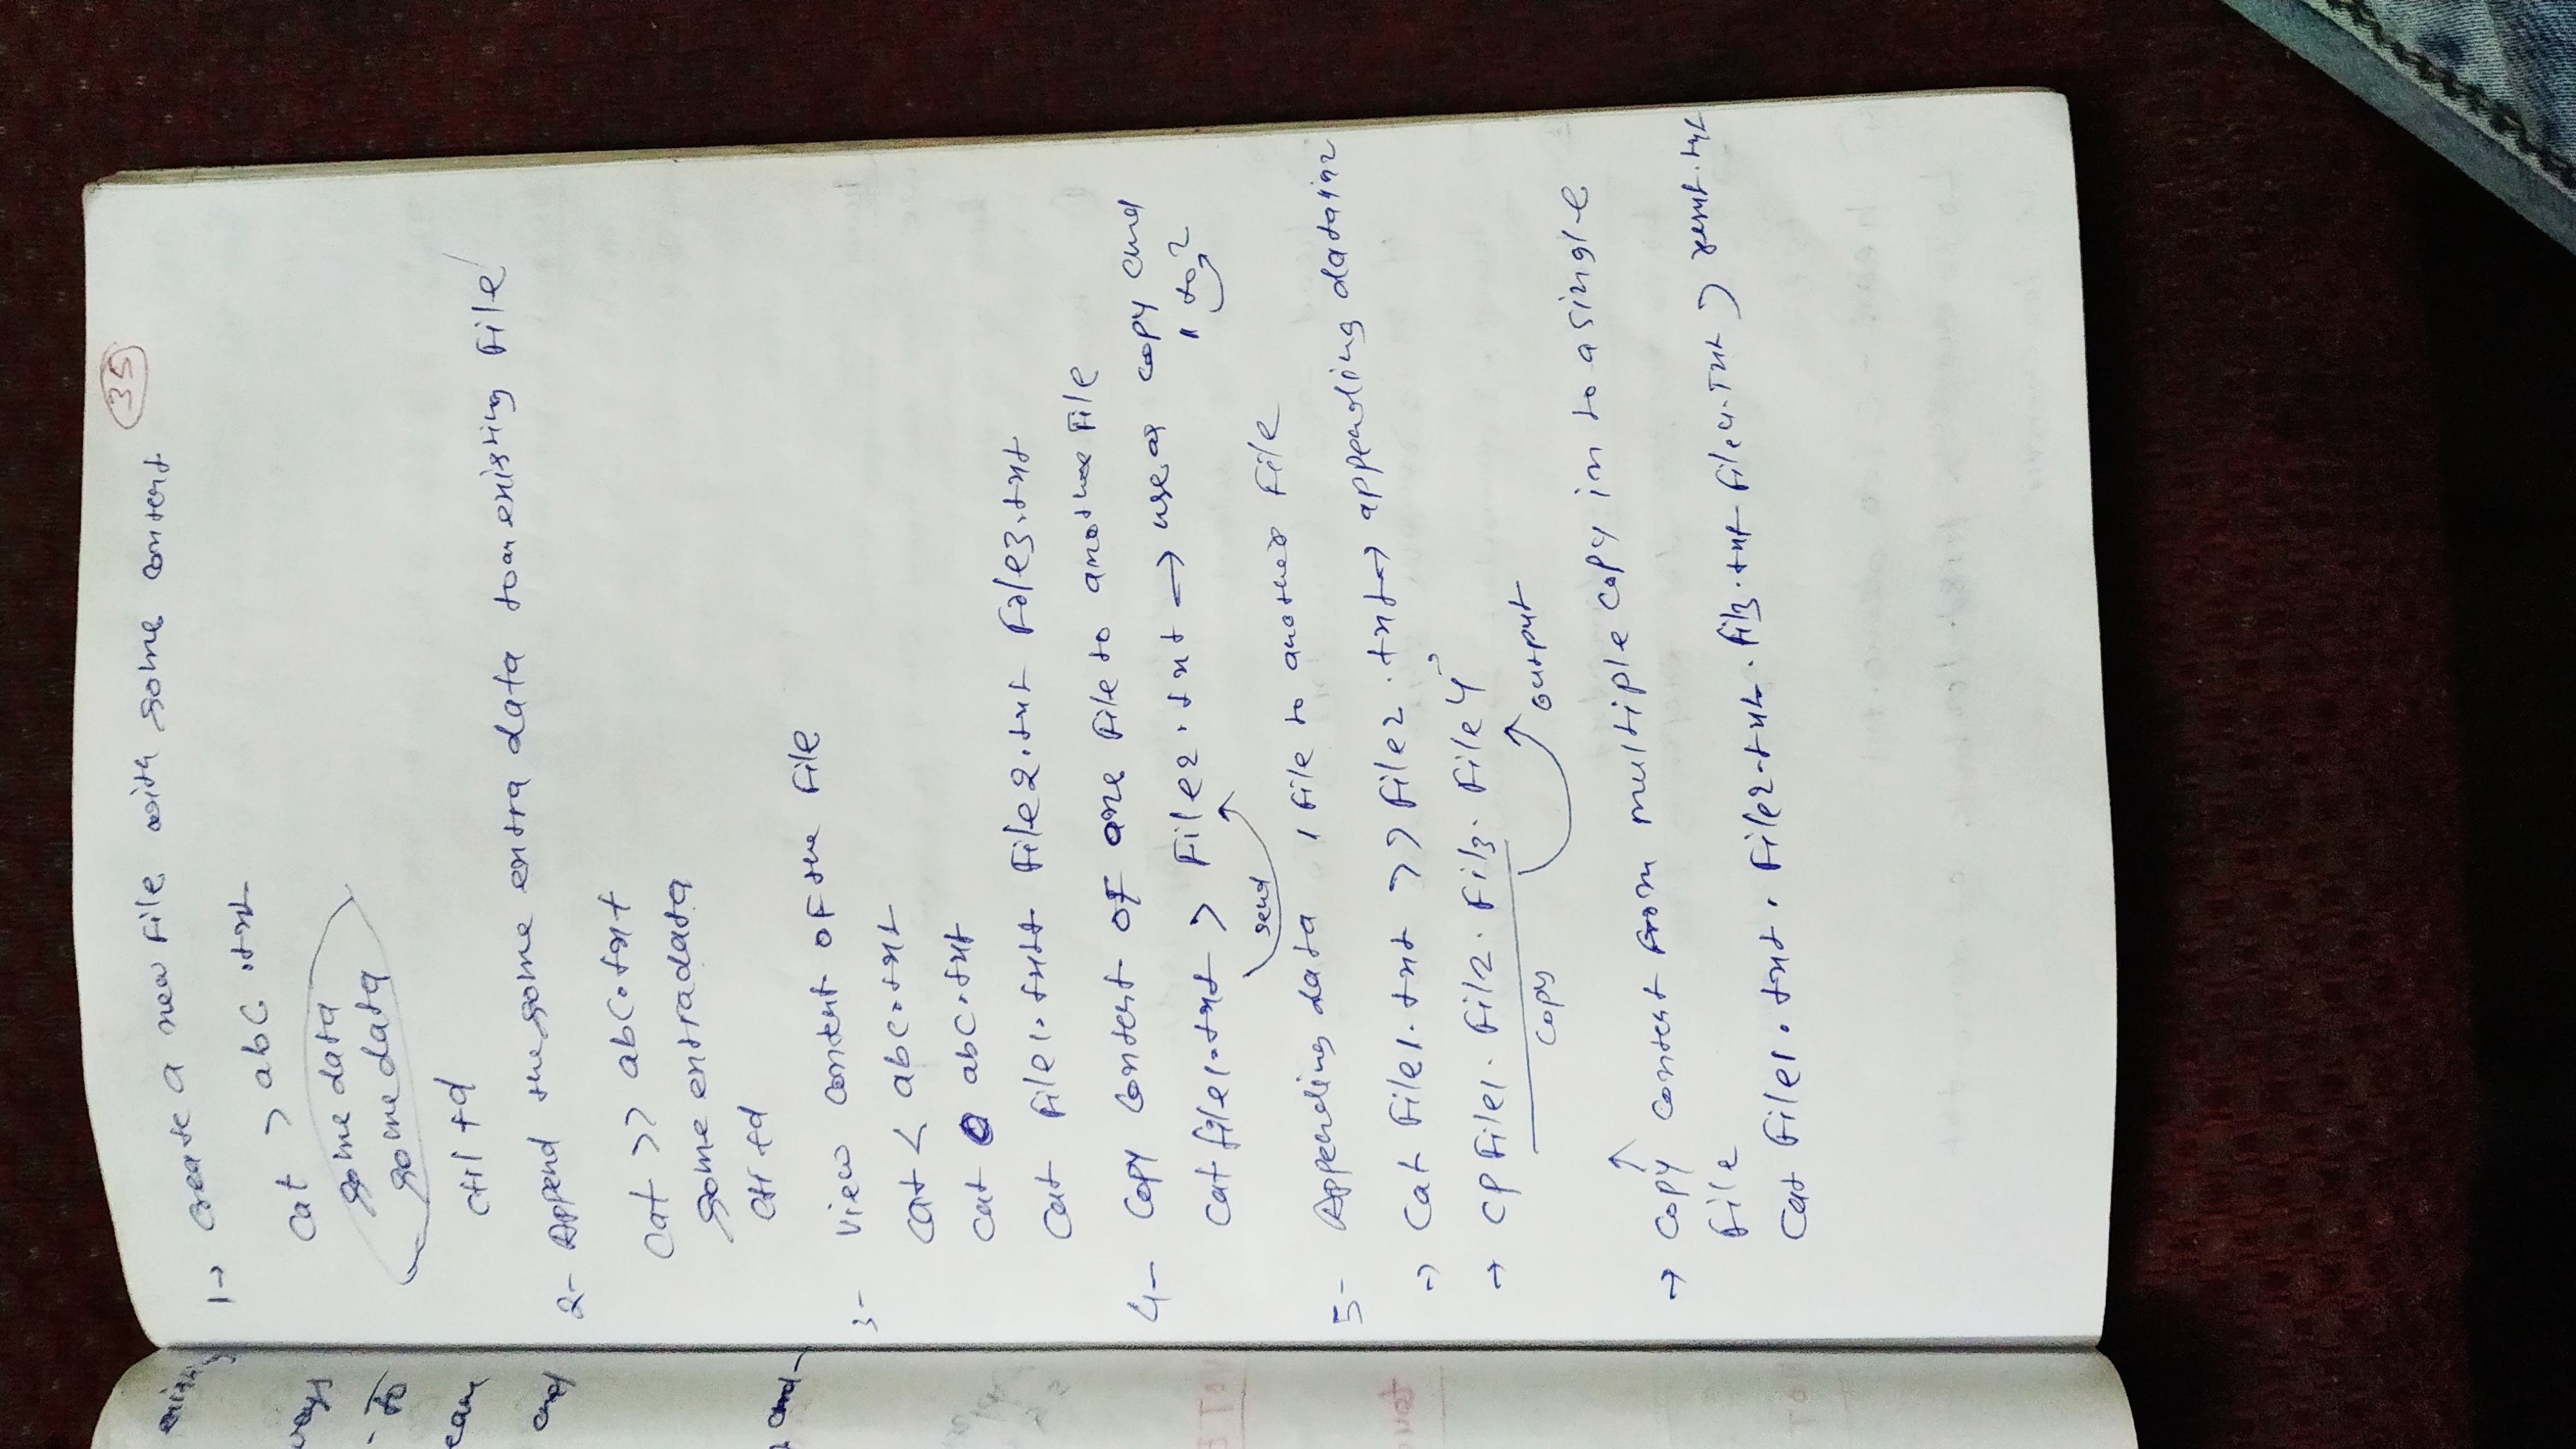 35
1→ Create a new File with some content
Cat > abc.txt
some data
some data
ctrl +d
2- Append the some extra data to an existing File
Cat >> abc.txt
some extradata
ctr +d
3- View content of the File
cat < abc.txt
cat abc.txt
Cat File1.txtt File2.txt File3.txt
4- Copy content of one File to another File
Cat file1.txt > File2.txt → use as copy cmd
send
1 to 2
5- Appending data 1 file to another File
→ Cat File1.txt >> File2.txt → appending data in 2
→ CP File1. Fil2. Fil3. File4
Copy output
→ Copy content from multiple copy in to a single
File
Cat File1.txt. File2.txt. fil3.txt File4.Txt > result.txt
exising
ways
- to
cmd
cmd-